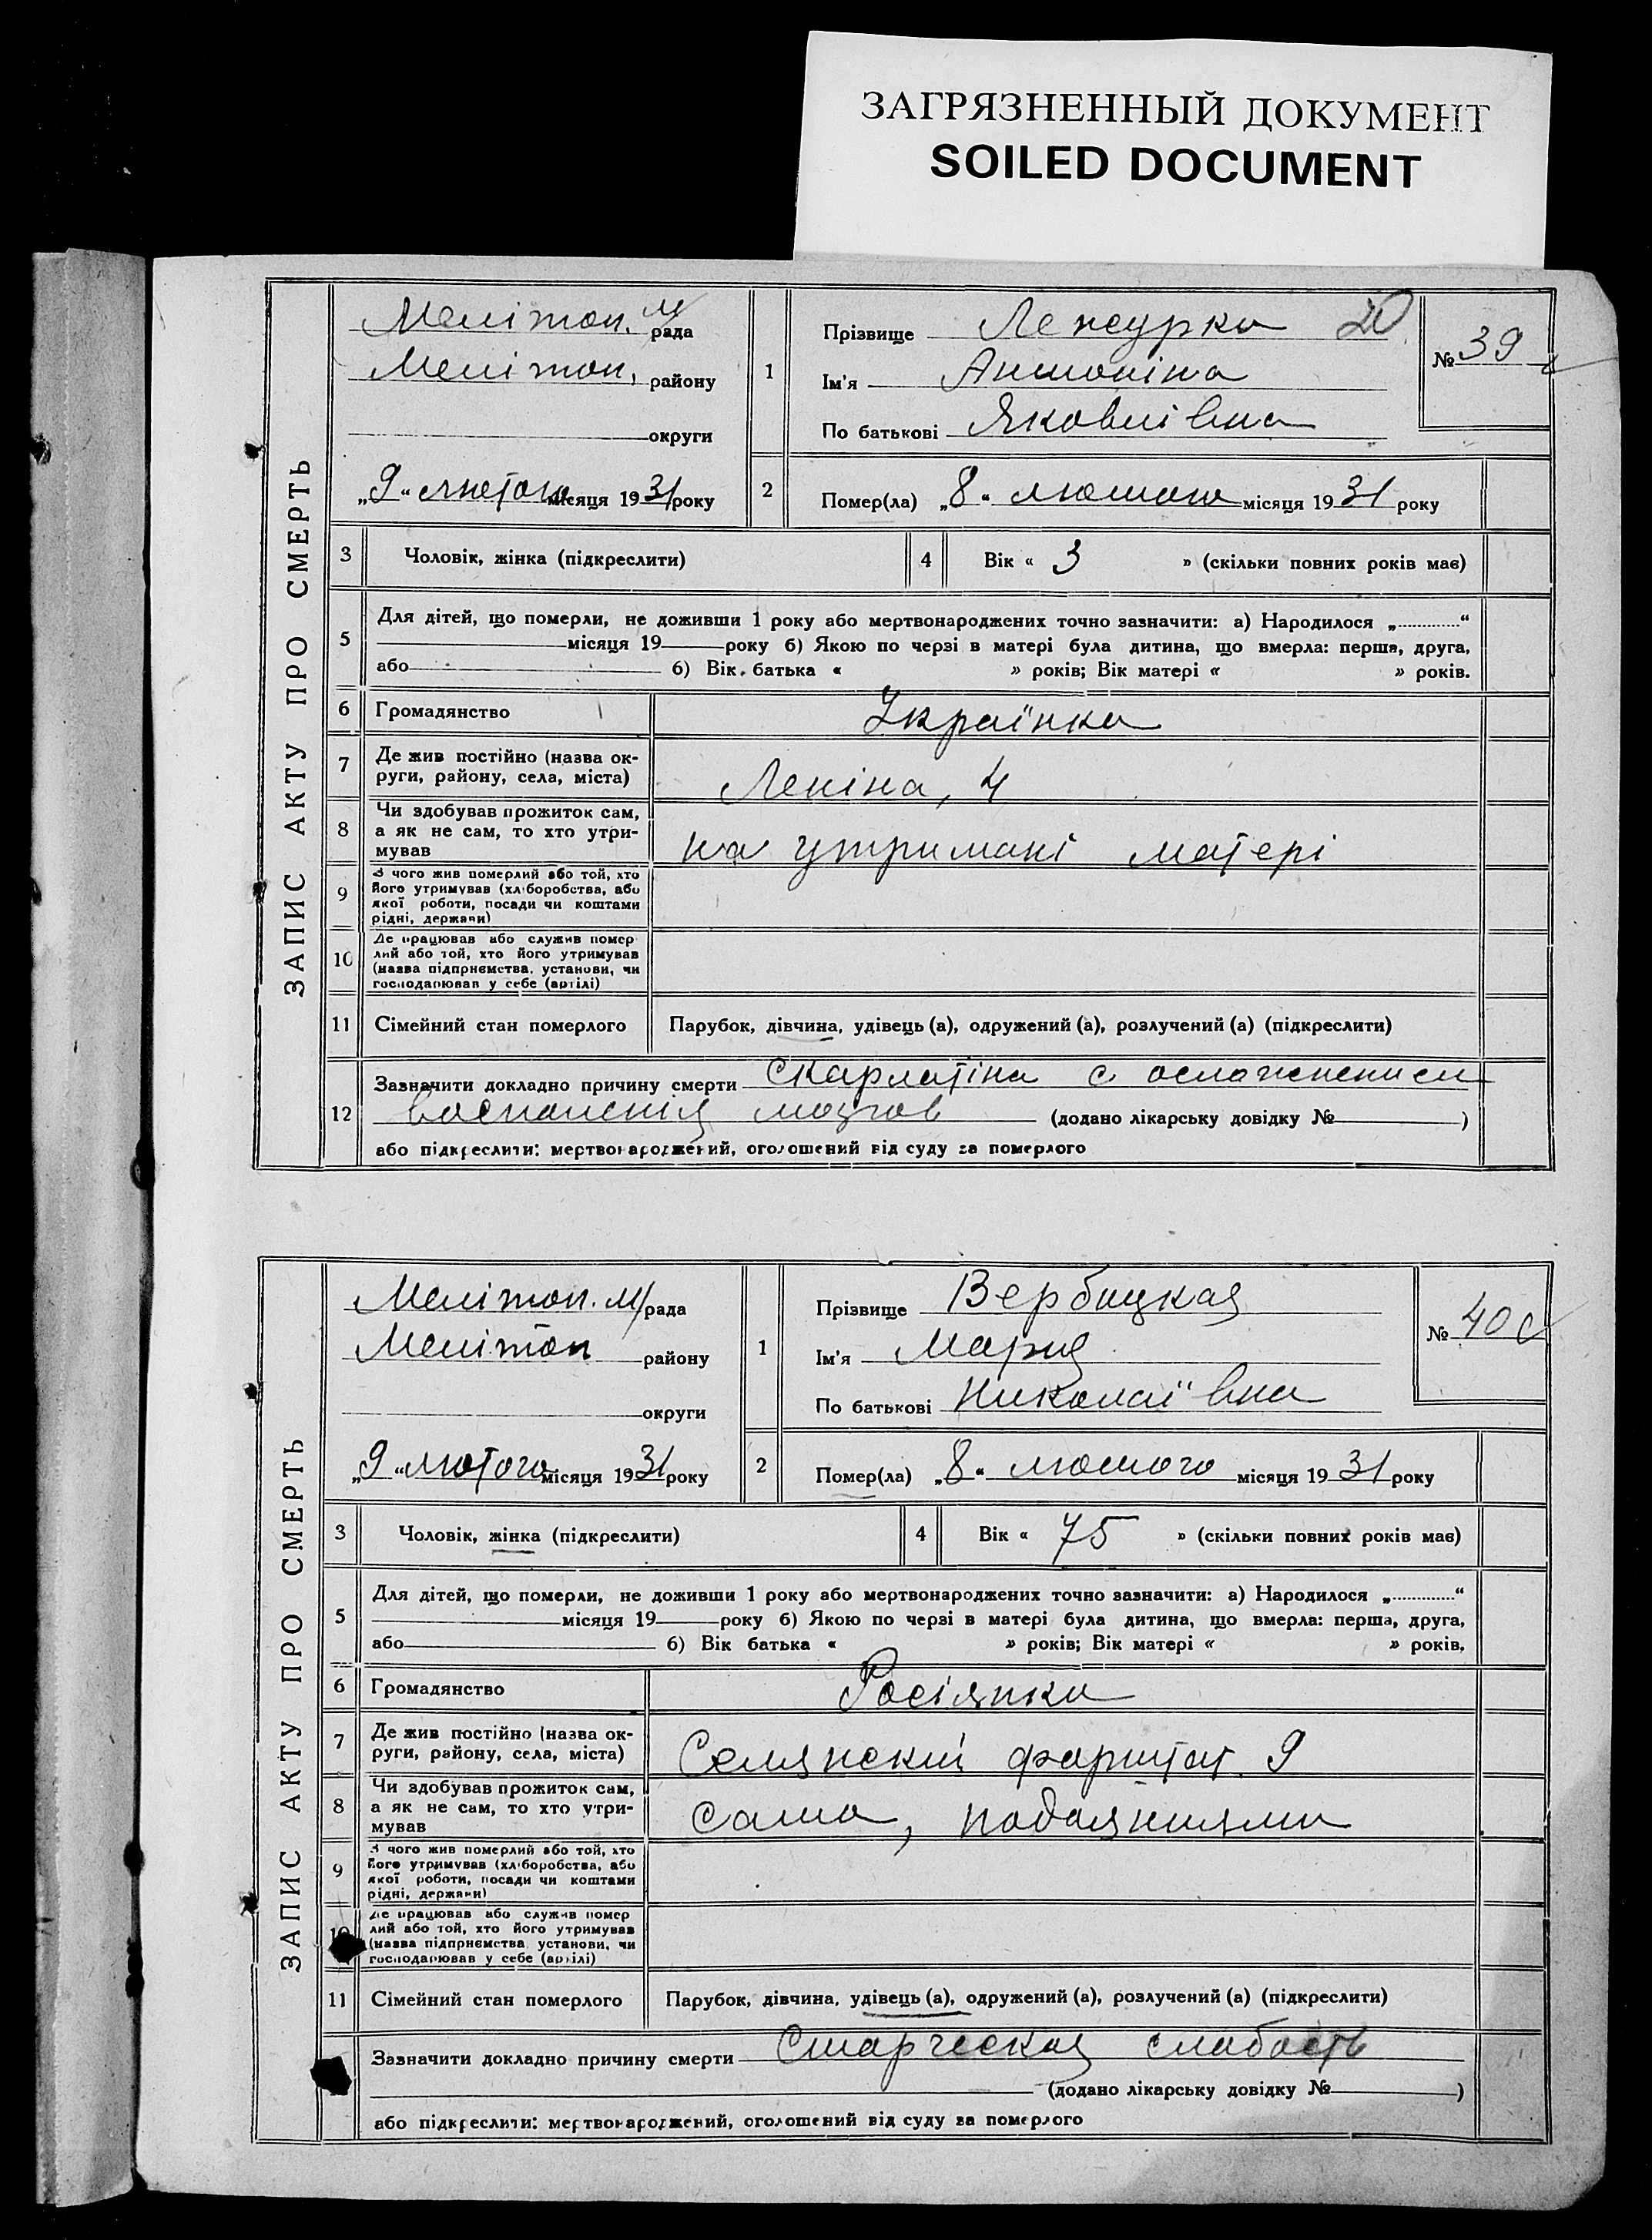 ЗАГРЯЗНЕННЫЙ ДОКУМЕНТ
SOILED DOCUMENT
ЗАПИС АКТУ ПРО СМЕРТЬ
Мелітоп. м/рада
Мелітоп. району
округи
„9“ лютого місяця 1931 року
1 Прізвище 20
Ім'я Антоніна
По батькові Яковлівна
№ 39
2 Помер(ла) „8“ лютого місяця 1931 року
3 Чоловік, жінка (підкреслити) 4 Вік « 3 » (скільки повних років має)
5 Для дітей, що померли, не доживши 1 року або мертвонароджених точно зазначити: а) Народилося „.............“
місяця 19 року б) Якою по черзі в матері була дитина, що вмерла: перша, друга,
або б) Вік батька « » років; Вік матері « » років.
6 Громадянство Українка
7 Де жив постійно (назва ок-
руги, району, села, міста) Леніна, 4
8 Чи здобував прожиток сам,
а як не сам, то хто утри-
мував на утримані матері
9 З чого жив померлий або той, хто
його утримував (хліборобства, або
якої роботи, посади чи коштами
рідні, держави)
10 Де працював або служив помер
лий або той, хто його утримував
(назва підприємства, установи, чи
господарював у себе (артілі)
11 Сімейний стан померлого Парубок, дівчина, удівець (а), одружений (а), розлучений (а) (підкреслити)
12 Зазначити докладно причину смерти Скарлатіна с осложнением
воспаленія мозгов (додано лікарську довідку № )
або підкреслити: мертвонароджений, оголошений від суду за померлого
ЗАПИС АКТУ ПРО СМЕРТЬ
Мелітоп. м/рада
Мелітоп району
округи
„9“ лютого місяця 1931 року
1 Прізвище Вербицкая
Ім'я Мария
По батькові Николаївна
№ 40
2 Помер(ла) „8“ лютого місяця 1931 року
3 Чоловік, жінка (підкреслити) 4 Вік « 75 » (скільки повних років має)
5 Для дітей, що померли, не доживши 1 року або мертвонароджених точно зазначити: а) Народилося „.............“
місяця 19 року б) Якою по черзі в матері була дитина, що вмерла: перша, друга,
або б) Вік батька « » років; Вік матері « » років.
6 Громадянство Росіянка
7 Де жив постійно (назва ок-
руги, району, села, міста) Селянский форштат. 9
8 Чи здобував прожиток сам,
а як не сам, то хто утри-
мував сама, подаяниями
9 З чого жив померлий або той, хто
його утримував (хліборобства, або
якої роботи, посади чи коштами
рідні, держави)
10 Де працював або служив помер
лий або той, хто його утримував
(назва підприємства, установи, чи
господарював у себе (артілі)
11 Сімейний стан померлого Парубок, дівчина, удівець (а), одружений (а), розлучений (а) (підкреслити)
Зазначити докладно причину смерти Старческая слабость
(додано лікарську довідку № )
або підкреслити: мертвонароджений, оголошений від суду за померлого